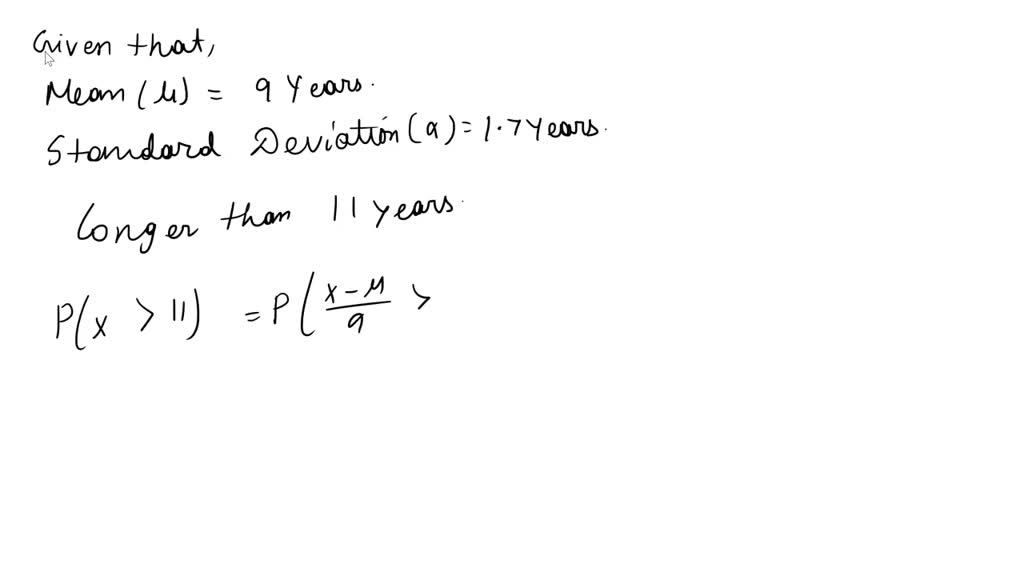 Given that,
Mean (μ) = 9 Years.
Standard Deviation (α) = 1.7 Years.
Longer than 11 years.
P(x > 11) = P( x - μ / 9 >